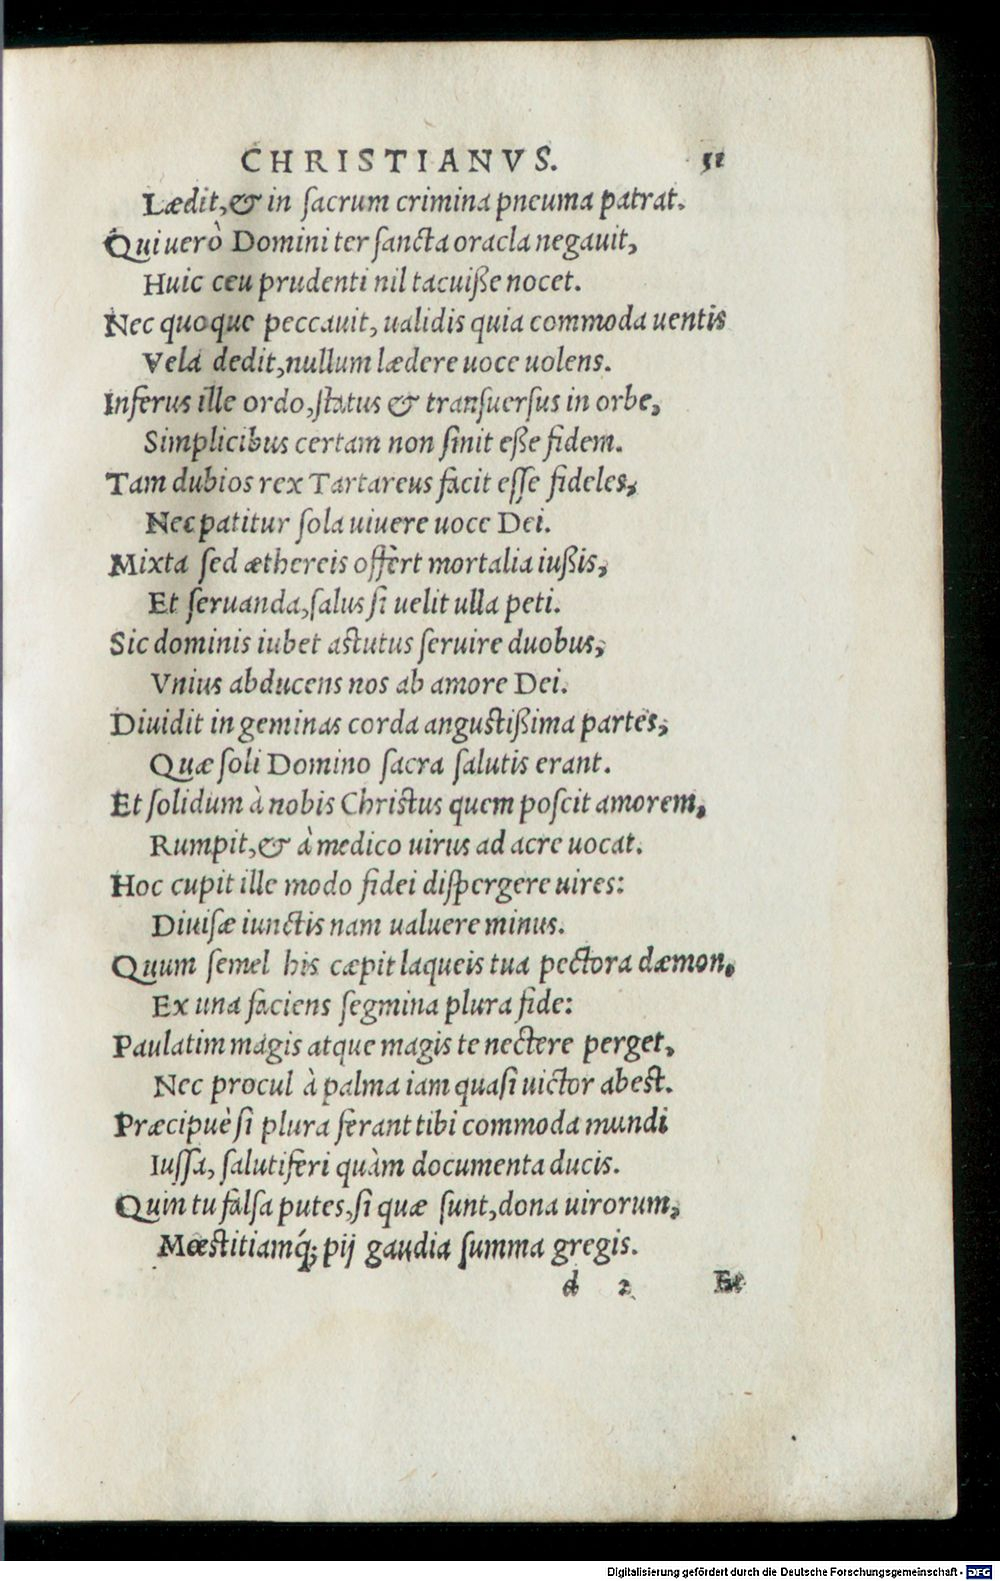 CHRISTIANVS. 51
Lædit, & in ſacrum crimina pneuma patrat.
Qui uerò Domini ter ſancta oracla negauit,
Huic ceu prudenti nil tacuiße nocet.
Nec quoque peccauit, ualidis quia commoda uentis
Vela dedit, nullum lædere uoce uolens.
Inferus ille ordo, ſtatus & tranſuerſus in orbe,
Simplicibus certam non ſinit eße fidem.
Tam dubios rex Tartareus facit eſſe fideles,
Nec patitur ſola uiuere uoce Dei.
Mixta ſed æthereis offert mortalia iußis,
Et ſeruanda, ſalus ſi uelit ulla peti.
Sic dominis iubet aſtutus ſeruire duobus,
Vnius abducens nos ab amore Dei.
Diuidit in geminas corda anguſtißima partes,
Quæ ſoli Domino ſacra ſalutis erant.
Et ſolidum à nobis Chriſtus quem poſcit amorem,
Rumpit, & à medico uirus ad acre uocat.
Hoc cupit ille modo fidei diſpergere uires:
Diuiſæ iunctis nam ualuere minus.
Quum ſemel his cæpit laqueis tua pectora dæmon,
Ex una faciens ſegmina plura fide:
Paulatim magis atque magis te nectere perget,
Nec procul à palma iam quaſi uictor abeſt.
Præcipuè ſi plura ferant tibi commoda mundi
Iuſſa, ſalutiferi quàm documenta ducis.
Quin tu falſa putes, ſi quæ ſunt, dona uirorum,
Mœſtitiamq́; pij gaudia ſumma gregis.
d 2 Et
Digitalisierung gefördert durch die Deutsche Forschungsgemeinschaft - DFG